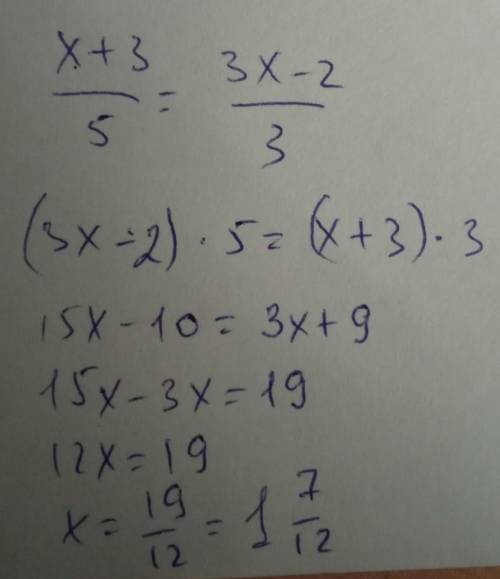 x+3/5 = 3x-2/3
(3x-2)·5=(x+3)·3
15x-10=3x+9
15x-3x=19
12x=19
x=19/12=1 7/12